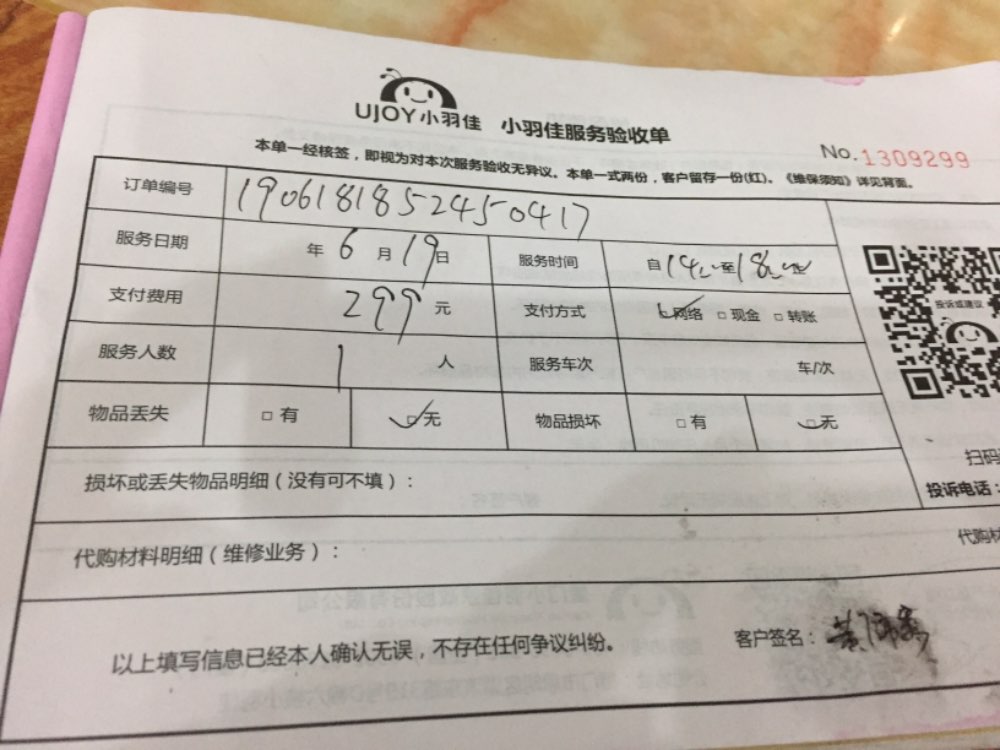 UJOY小羽佳 小羽佳服务验收单
No.1309299
本单一经核签，即视为对本次服务验收无异议。本单一式两份，客户留存一份(红)。《维保须知》详见背面。
订单编号 1906181852450417
服务日期 年 6 月 19 日 服务时间 自 14 至 18
支付费用 299 元 支付方式 □网络 □现金 □转账
投诉或建议
服务人数 1 人 服务车次 车/次
物品丢失 □有 □无 物品损坏 □有 □无
扫码
损坏或丢失物品明细（没有可不填）：
投诉电话：
代购材料明细（维修业务）：
代购材
以上填写信息已经本人确认无误，不存在任何争议纠纷。 客户签名：